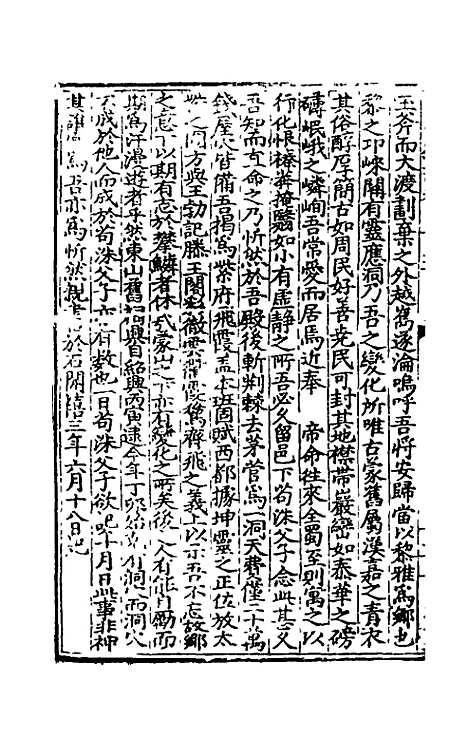 玉斧而大渡劃棄之外越嶲遂淪嗚呼吾將安歸當以黎雅爲鄉也
黎之邛崍關有靈應洞乃吾之變化所唯古蒙舊屬漢嘉之青衣
其俗醇厚簡古如周民好善堯民可封其地襟帶巖巒如泰華之磅
礴岷峨之嶙峋吾常愛而居焉近奉　帝命往來全蜀至則寓之以
行化恨榛莽掩翳如小有虛静之所吾必久留邑下苟洙父子念此其父
吾知而直命之乃忻然於吾殿後斬荆棘去茅菅爲一洞天費僅二十萬
錢屋皆備吾揭爲紫府飛霞盖本班固賦西都據坤靈之正位放太
之同方與王勃記滕王閣彩徹雲霞鶩齊飛之義上以示吾不忘故鄉
之意下以期有志於攀鱗者休哉蒙山之下亦有變化之所矣後人有能自勵而
期爲汗漫遊者乎然東山舊洞興自紹興丙寅逮今年丁卯始有洞而洞
不成於他人而成於苟洙父子亦有數也一日苟洙父子欲記年月日此事非神
其誰爲吾亦爲忻然親書於石開禧三年六月十八日記